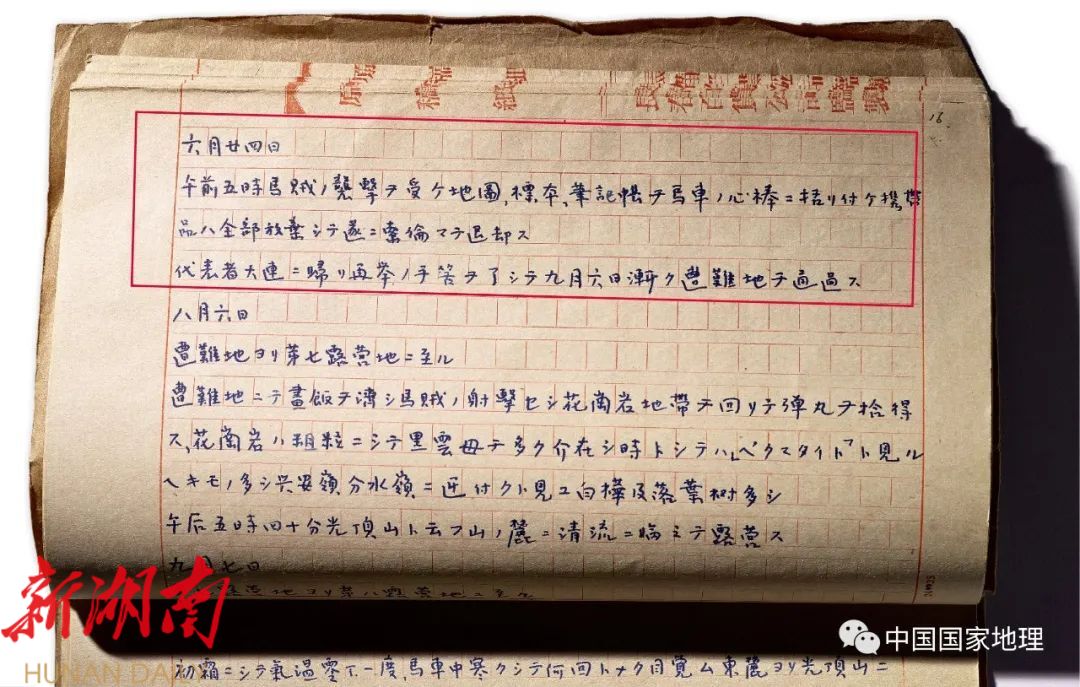 原稿紙
16
六月廿四日
午前五時馬賊ノ襲撃ヲ受ケ地圖、標本、筆記帳ヲ馬車ノ心棒ニ括リ付ケ携帶
品ハ全部放棄シテ遂ニ索倫マテ退却ス
代表者大連ニ歸リ再挙ノ手答ヲ了シテ九月六日漸ク遭難地ヲ通過ス
八月六日
遭難地ヨリ第七露営地ニ至ル
遭難地ニテ晝飯ヲ濟シ馬賊ノ射撃セシ花崗岩地帶ヲ回リテ弾丸ヲ拾得
ス、花崗岩ハ粗粒ニシテ黒雲母ヲ多ク介在シ時トシテハ「ペクマタイト」ト見ル
ヘキモノ多シ興安嶺分水嶺ニ近付クト見エ白樺及落葉樹多シ
午后五時四十分光頂山ト云フ山ノ麓ニ清流ニ臨ミテ露営ス
九月七日
露営地ヨリ第八露営地ニ至ル
初霜ニシテ氣温零下一度、馬車中寒クシテ何回トナク目覚ム東麓ヨリ光頂山ニ
新湖南
HUNAN DA
中国国家地理